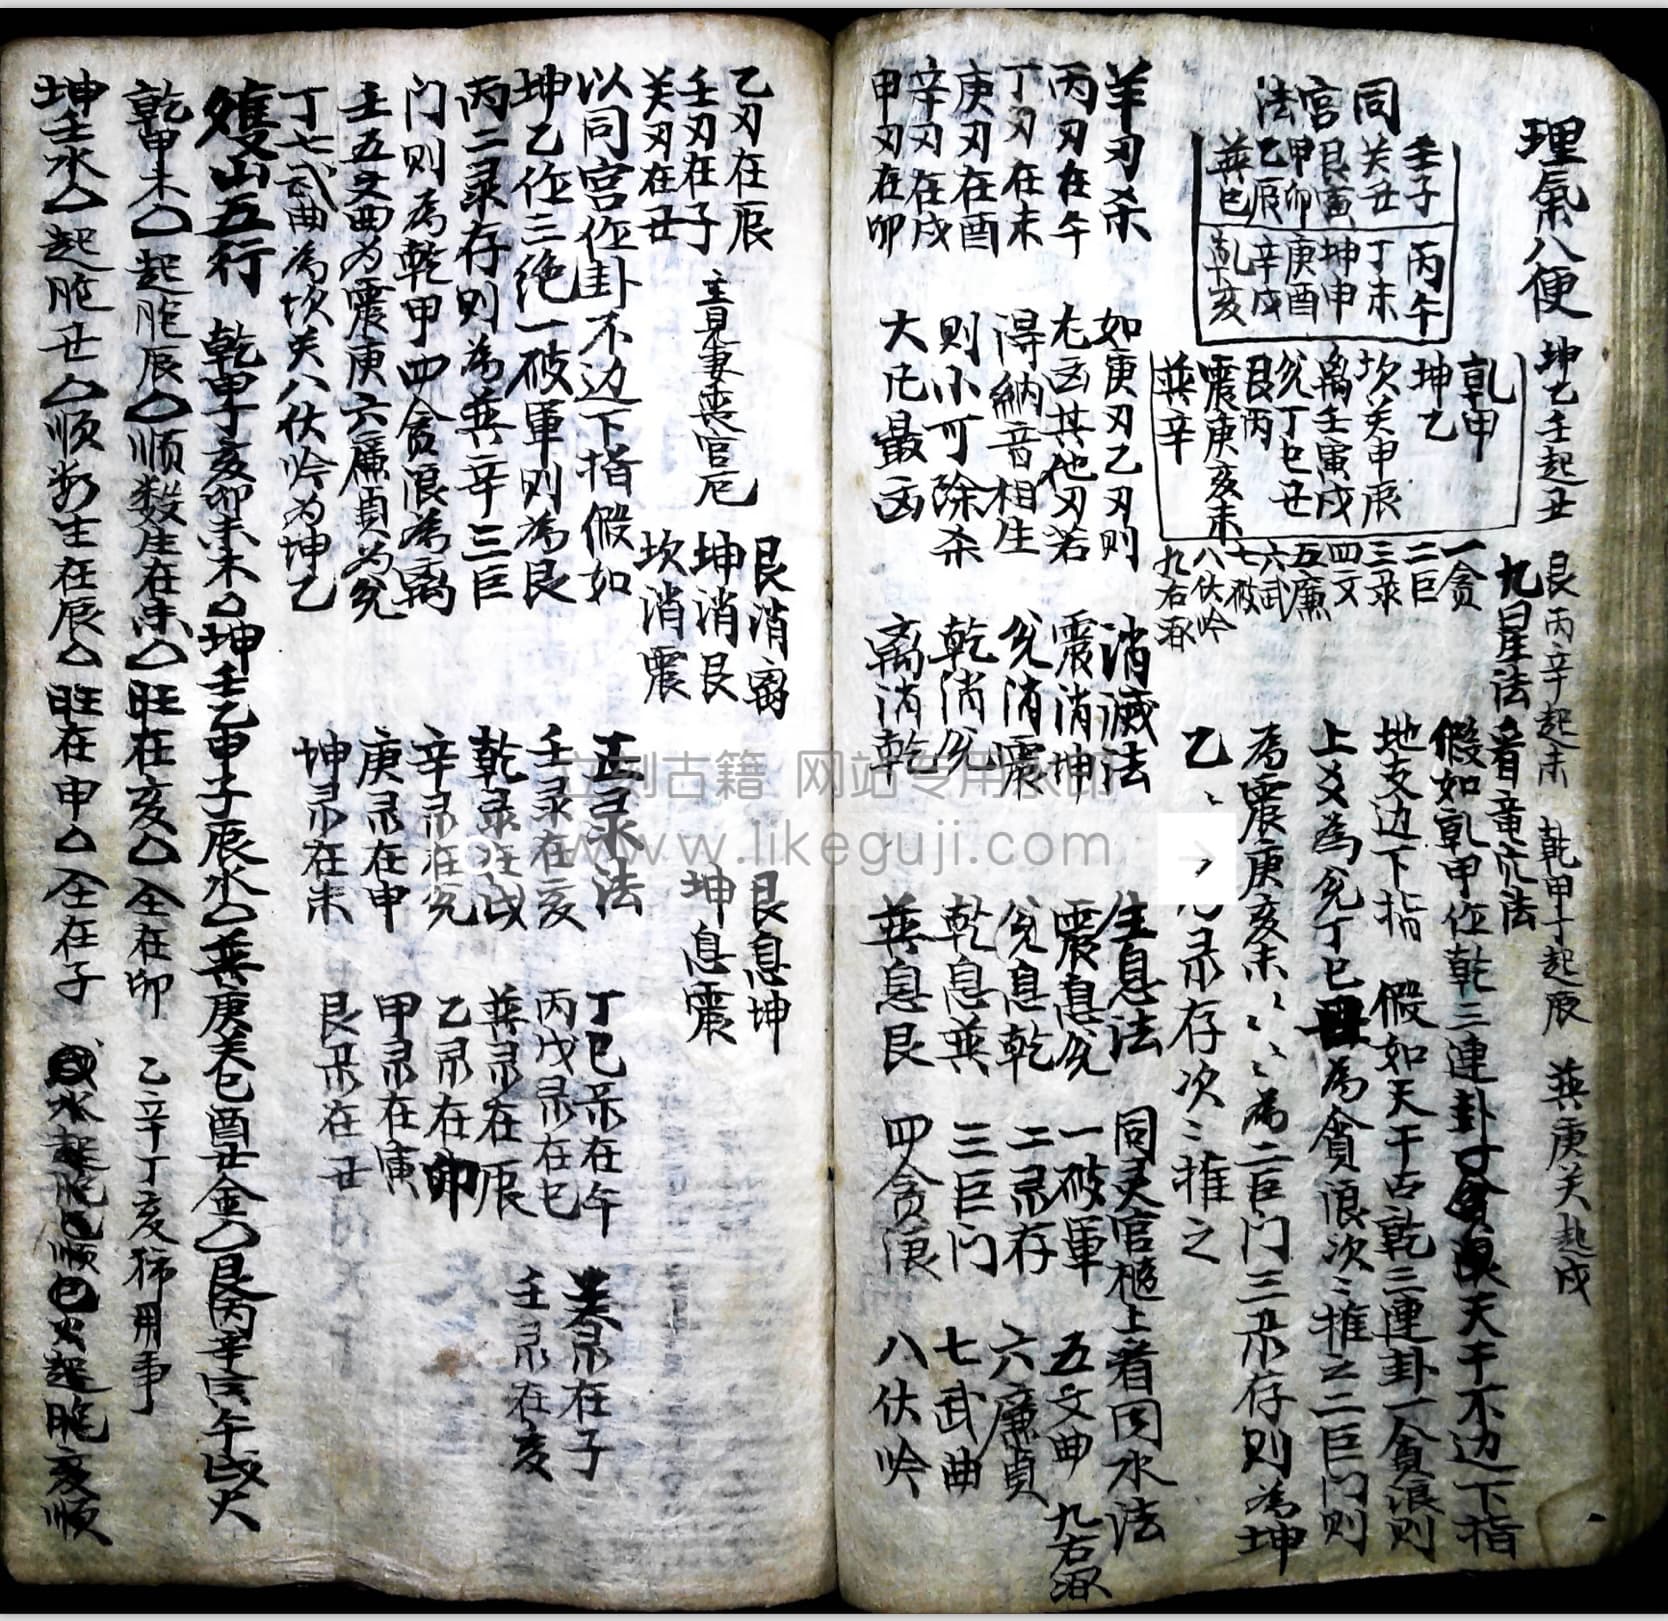 理氣八便
坤乙壬起丑
艮丙辛起未
乾甲丁起辰
巽庚关起戌
同宮法
壬子 丙午
关丑 丁未
艮寅 坤申
甲卯 庚酉
乙辰 辛戌
巽巳 乾亥
乾甲
坤乙
坎关申辰
离壬寅戌
兊丁巳丑
艮丙
震庚亥未
巽辛
九星法
一贪
二巨
三录
四文
五廉
六武
七破
八伏吟
九右
看竜坑法
假如乾甲作乾三連卦
天干不边下指
地支边下指
假如天干占乾三連卦一貪浪则
上爻為兊丁巳丑為貪浪次〻推之二巨门则
為震庚亥未
為二巨门三录存则為坤
乙
录存次〻推之
羊刃杀
丙刃在午
丁刃在未
庚刃在酉
辛刃在戌
甲刃在卯
如庚刃乙刃则
尢凶其他刃若
得納音相生
则小可除杀
大凡最凶
消滅法
震消坤
兊消震
乾消兊
离消乾
生息法
震息兊
兊息乾
乾息巽
巽息艮
同宮
上看
水法
一破軍
二录存
三巨门
四贪浪
五文曲
六廉貞
七武曲
八伏吟
九右
乙刃在辰
壬刃在子
关刃在丑
主見妻喪官厄
艮消离
坤消艮
坎消震
艮息坤
坤息震
以同宫作卦不边下指假如
坤乙作三绝一破軍则為艮
丙二录存则為巽辛三巨
门则為乾甲四贪浪為离
壬五文曲为震庚六廉貞为兊
丁七武曲為坎关八伏吟为坤乙
正录法
壬录在亥
乾录在戌
辛录在兊
庚录在申
坤录在未
丁巳录在午
丙戊录在巳
巽录在辰
乙录在卯
甲录在寅
艮录在丑
关录在子
壬录在亥
雙山五行
乾甲丁亥卯未木
坤壬乙申子辰水
巽庚关巳酉丑金
艮丙辛寅午戌火
乾甲木
起胞辰
顺数生在未
旺在亥
仝在卯
乙辛丁亥
用事
坤壬水
起胞丑
顺数生在辰
旺在申
仝在子
水起胞
顺
火起胞亥順
立刻古籍 网站专用水印
www.likeguji.com